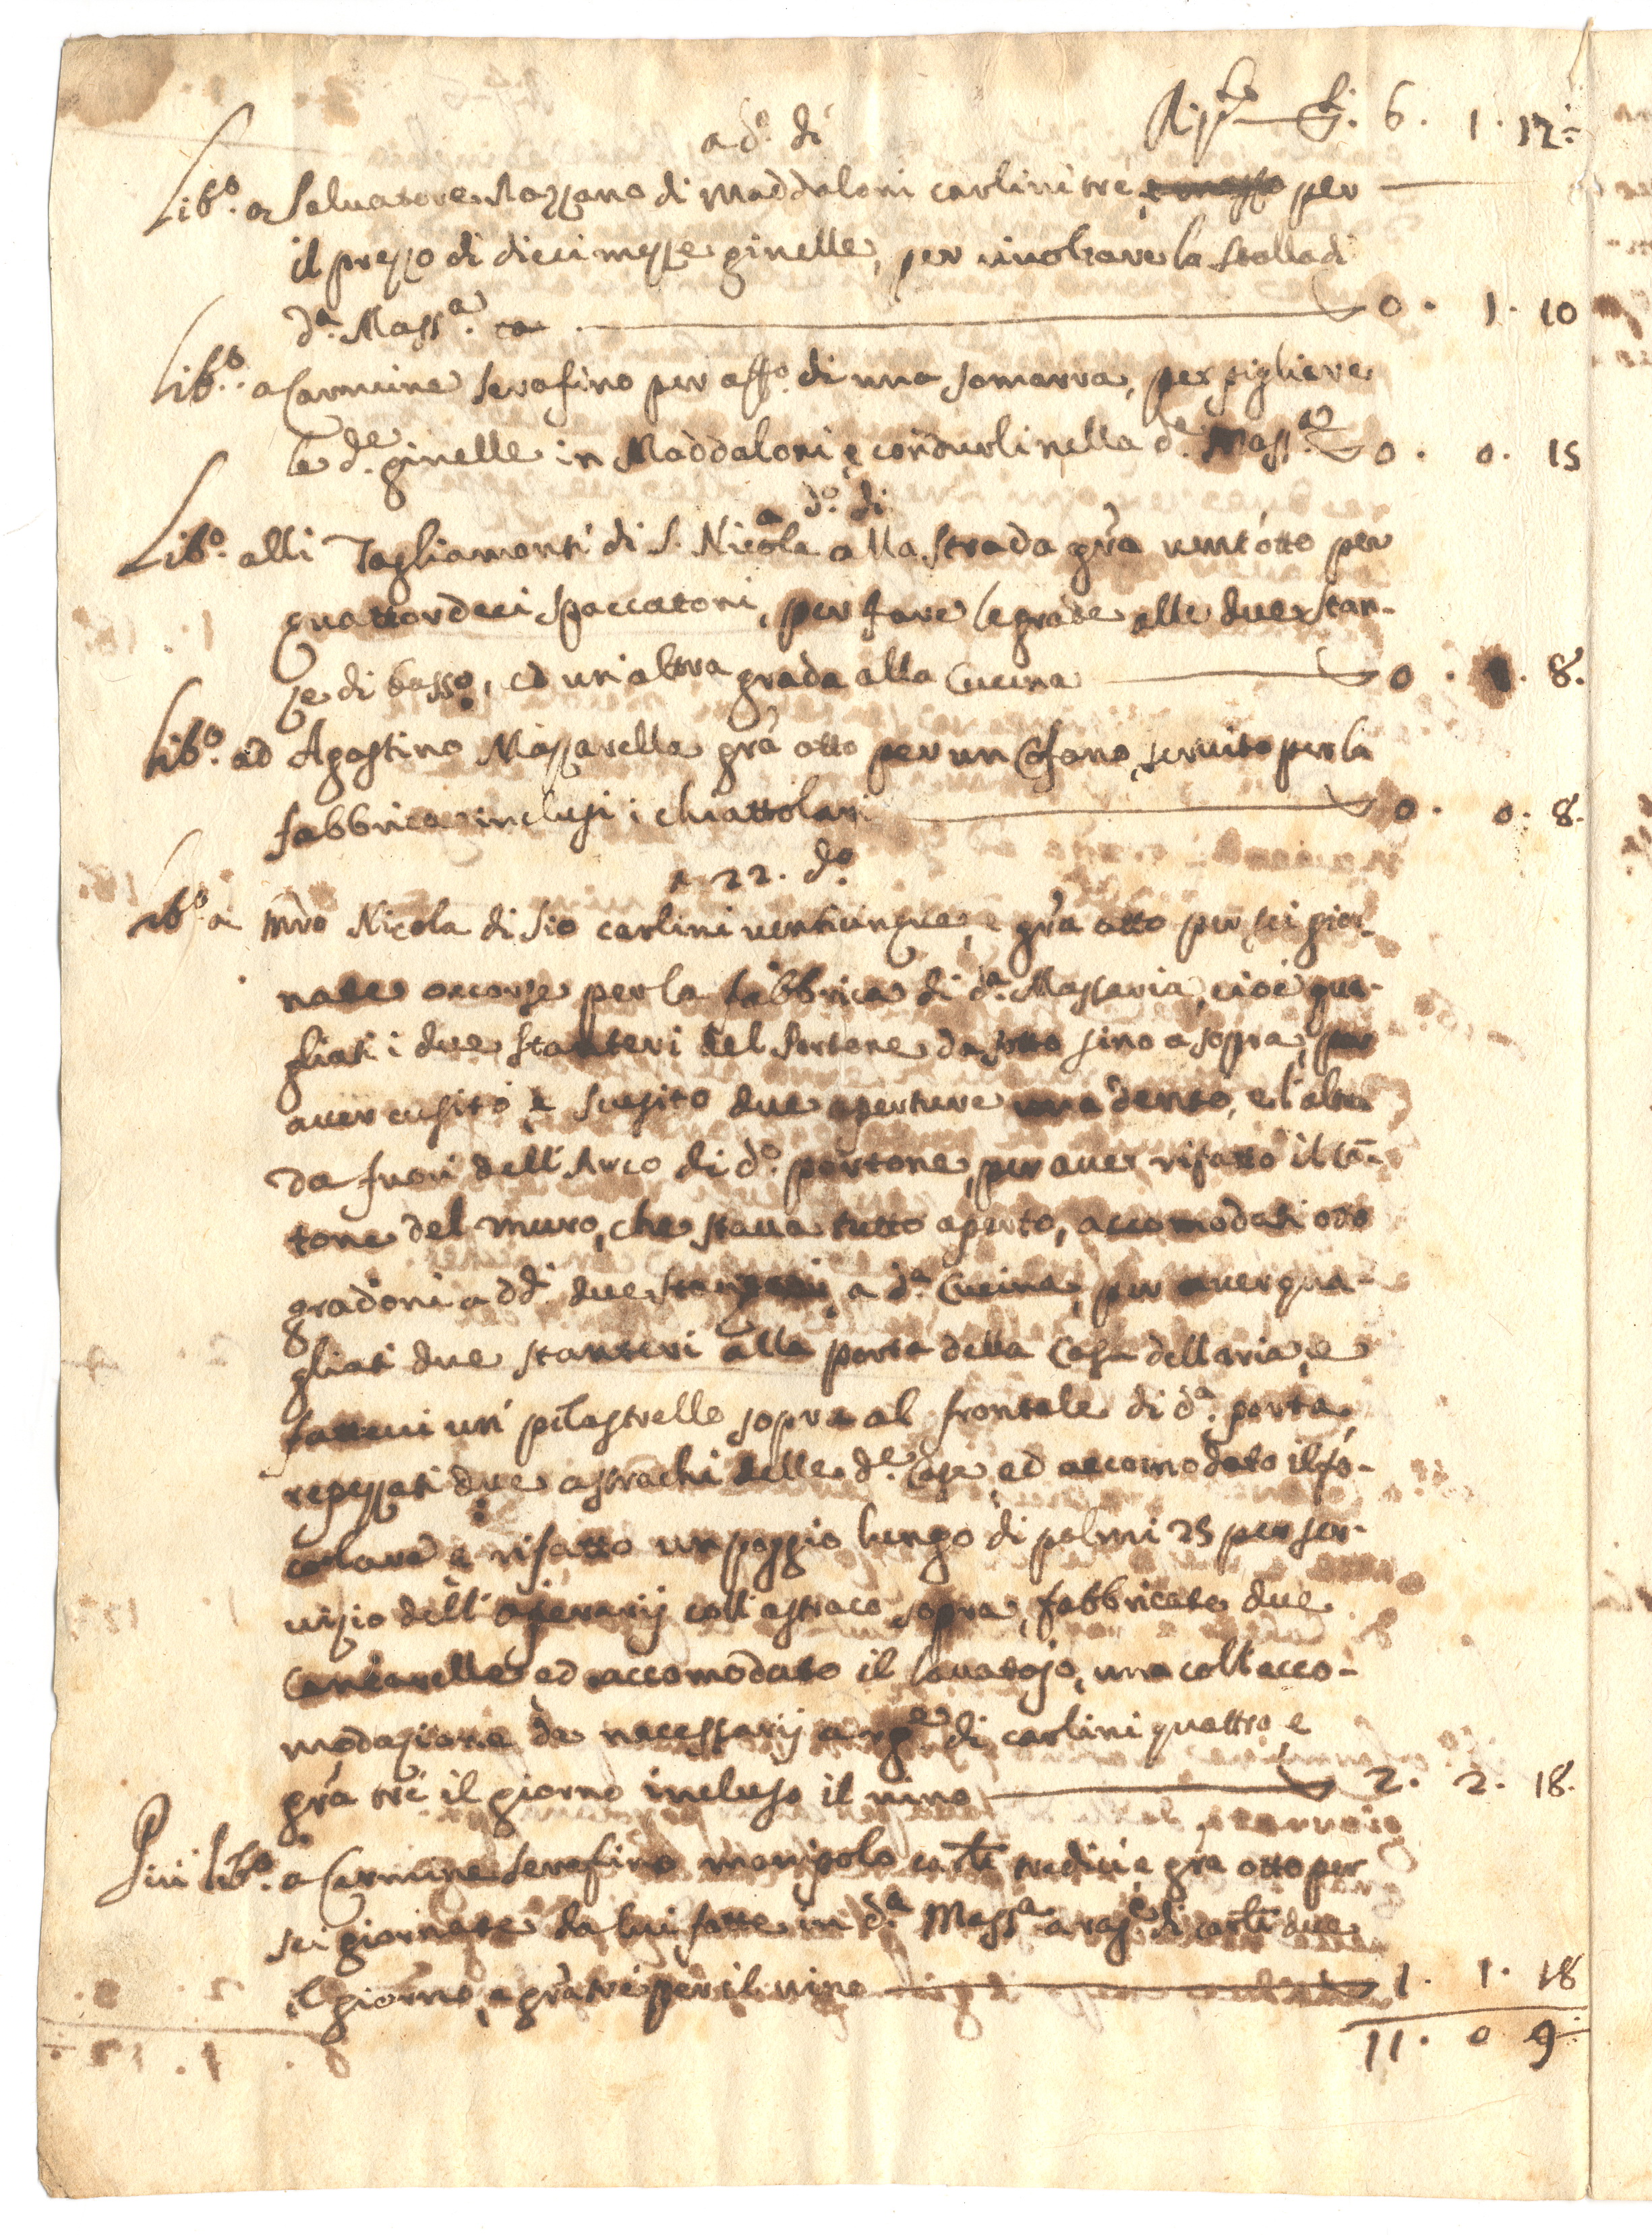 Rip.to D. 6. 1. 12:
a d.o dì
Lib.o a Salvatore Mazzano di Maddaloni carlini tre, e mezzo per
il prezzo di dieci mezze ginelle, per involtare la stalla di
d.a Mass.a 0. 1. 10
Lib.o a Carmine Serafino per aff.o di una somarra, per pigliare
le d.e ginelle in Maddaloni e condurli nella d.a Mass.a 0. 0. 15
a d.o dì
Lib.o alli Tagliamonti di S. Nicola alla strada gra vent'otto per
quattordeci spaccatoni, per fare le grade alle due stan-
ze di basso, ed un'altra grada alla Cucina 0. 1. 8.
Lib.o ad Agostino Mazzarella gra otto per un Cofano, servito per la
fabbrica inclusi i chiattolari 0. 0. 8.
a 22. d.o
Lib.o a mro Nicola di Sio carlini venticinque, e gra otto per sei gior-
nate occorse per la fabbrica di d.a Massaria, cioè qua-
gliati i due stanteri del Portone da sotto sino a sopra, per
aver cusito, e scusito due aperture una dentro, e l'altra
da fuori dell'Arco di d.o portone, per aver rifatto il can-
tone del muro, che stava tutto aperto, accomodati otto
gradoni a dd.i due, a d.a Cucina, per aver qua-
gliati due stanteri alla porta della Casa dell'aria, e
fattovi un' pilastrello sopra al frontale di d.a porta,
repezzati due astrachi delle d.e Case, ed accomodato il fo-
colare e rifatto un poggio lungo di palmi 25 per ser-
vizio dell'operarij coll'astraco sopra, fabbricate due
cantarelle ed accomodato il lavatojo, una coll'acco-
modazione de necessarij a rag.e di carlini quattro, e
gra tre il giorno incluso il vino 2. 2. 18.
Più lib.o a Carmine Serafino manipolo carl.i tredici e gra otto per
sei giornate da lui fatte in d.a Mass.a a rag.e di carl.i due
il giorno, e gra tre per il vino 1. 1. 18
11. 0 9.